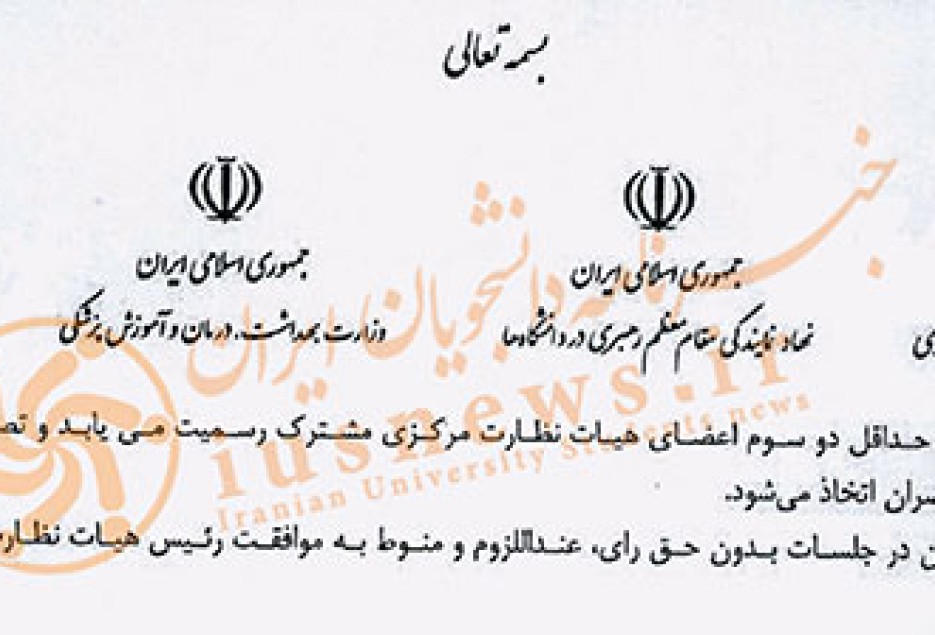 بسمه تعالی
جمهوری اسلامی ایران
نهاد نمایندگی مقام معظم رهبری در دانشگاه‌ها
جمهوری اسلامی ایران
وزارت بهداشت، درمان و آموزش پزشکی
خبرنامه دانشجویان ایران
iusnews.ir
Iranian University Students news
حداقل دو سوم اعضای هیات نظارت مرکزی مشترک رسمیت می یابد و
اتخاذ می‌شود.
در جلسات بدون حق رای، عنداللزوم و منوط به موافقت رئیس هیات